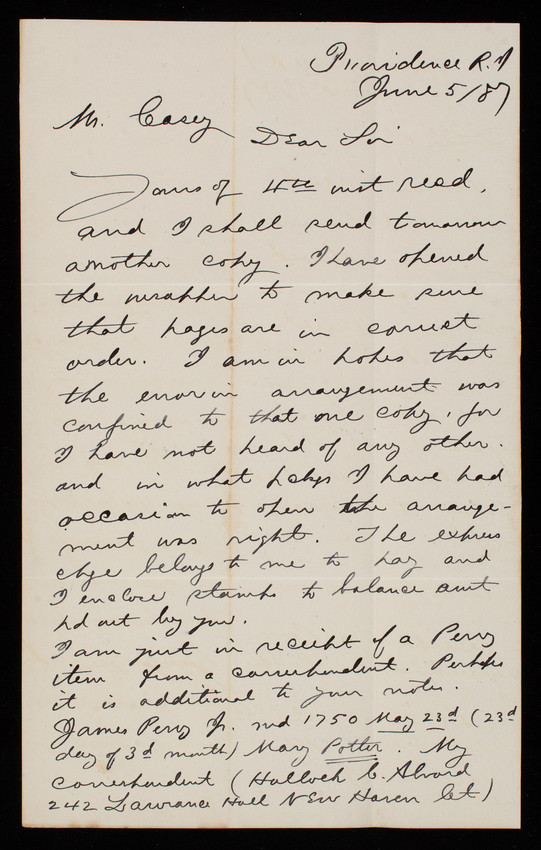 Providence R.I
June 5/87
Mr. Casey
Dear Sir
Yours of 4th inst recd,
and I shall send tomorrow
another copy. I have opened
the wrapper to make sure
that pages are in correct
order. I am in hopes that
the error in arrangement was
confined to that one copy, for
I have not heard of any other.
and in what pckgs I have had
occasion to open the arrange-
ment was right. The express
chge belongs to me to pay and
I enclose stamps to balance amt
pd out by you.
I am just in receipt of a Perry
item from a correspondent. Perhaps
it is additional to your notes.
James Perry Jr. md 1750 May 23d (23d
day of 3d month) Mary Potter. My
correspondent (Hallock C. Alvord
242 Lawrance Hall New Haven Ct)